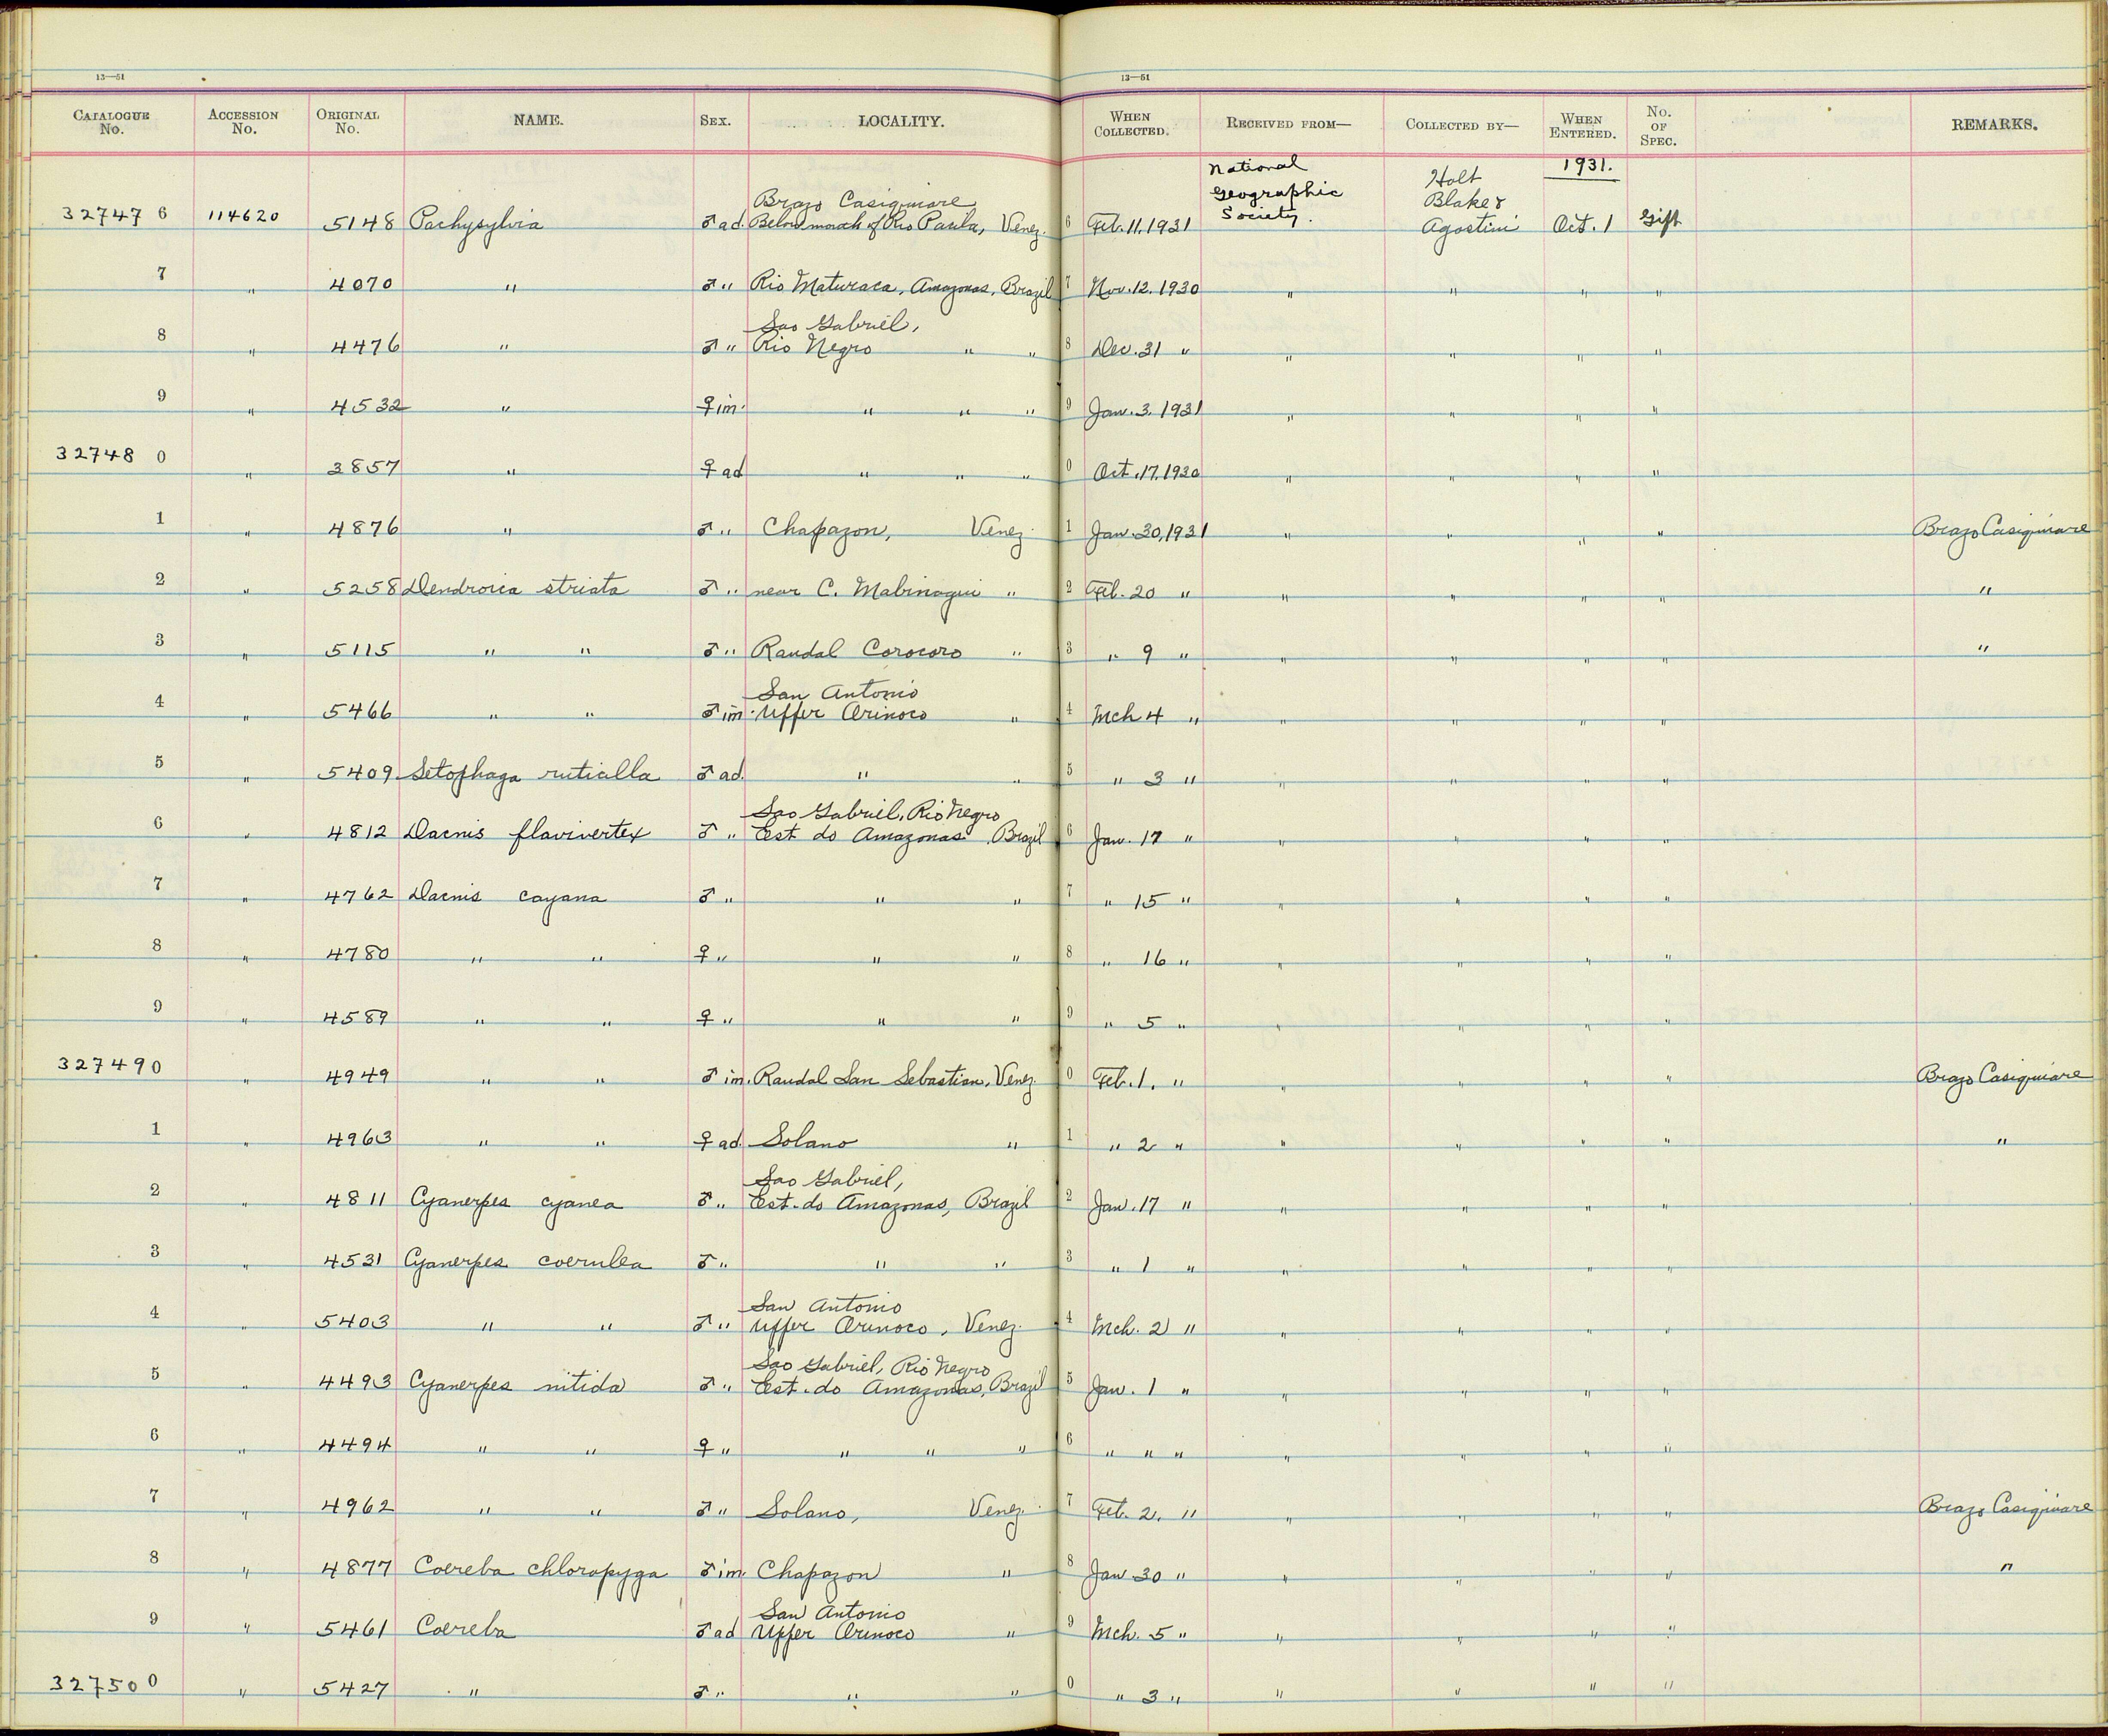 13—51 13—51
CATALOGUE No. ACCESSION No. ORIGINAL No. NAME. SEX. LOCALITY. WHEN COLLECTED. RECEIVED FROM— COLLECTED BY— WHEN ENTERED. No. OF SPEC. REMARKS.
National Geographic Society. Holt Blake & Agostini 1931.
Brazo Casiquiare
32747 6 114620 5148 Pachysylvia ♂ ad. Below mouth of Rio Pasila, Venez. 6 Feb. 11, 1931 Oct. 1 Gift
7 " 4070 " ♂ " Rio Maturaca, Amazonas, Brazil 7 Nov. 12, 1930 " " " "
Sao Gabriel,
8 " 4476 " ♂ " Rio Negro " " 8 Dec. 31 " " " " "
9 " 4532 " ♀ im. " " " 9 Jan. 3, 1931 " " " "
32748 0 " 3857 " ♀ ad " " " 0 Oct. 17, 1930 " " " "
1 " 4876 " ♂ " Chapazon, Venez. 1 Jan. 30, 1931 " " " " Brazo Casiquiare
2 " 5258 Dendroica striata ♂ " near C. Mabinaqui " 2 Feb. 20 " " " " " "
3 " 5115 " " ♂ " Raudal Corocoro " 3 " 9 " " " " " "
San Antonio
4 " 5466 " " ♂ im. Upper Orinoco " 4 Mch 4 " " " " "
5 " 5409 Setophaga ruticilla ♂ ad. " " 5 " 3 " " " " "
Sao Gabriel, Rio Negro
6 " 4812 Dacnis flaviventer ♂ " Est do Amazonas, Brazil 6 Jan. 17 " " " " "
7 " 4762 Dacnis cayana ♂ " " " 7 " 15 " " " " "
8 " 4780 " " ♀ " " " 8 " 16 " " " " "
9 " 4589 " " ♀ " " " 9 " 5 " " " " "
32749 0 " 4949 " " ♂ im. Raudal San Sebastian, Venez. 0 Feb. 1. " " " " " Brazo Casiquiare
1 " 4963 " " ♀ ad. Solano " 1 " 2 " " " " " "
Sao Gabriel,
2 " 4811 Cyanerpes cyanea ♂ " Est. do Amazonas, Brazil 2 Jan. 17 " " " " "
3 " 4531 Cyanerpes coerulea ♂ " " " 3 " 1 " " " " "
San Antonio
4 " 5403 " " ♂ " Upper Orinoco, Venez. 4 Mch. 2 " " " " "
Sao Gabriel, Rio Negro
5 " 4493 Cyanerpes nitida ♂ " Est. do Amazonas, Brazil 5 Jan. 1 " " " " "
6 " 4494 " " ♀ " " " " 6 " " " " " " "
7 " 4962 " " ♂ " Solano, Venez. 7 Feb. 2. " " " " " Brazo Casiquiare
8 " 4877 Coereba chloropyga ♂ im. Chapazon " 8 Jan 30 " " " " " "
San Antonio
9 " 5461 Coereba ♂ ad Upper Orinoco " 9 Mch. 5 " " " " "
32750 0 " 5427 " ♂ " " " 0 " 3 " " " " "